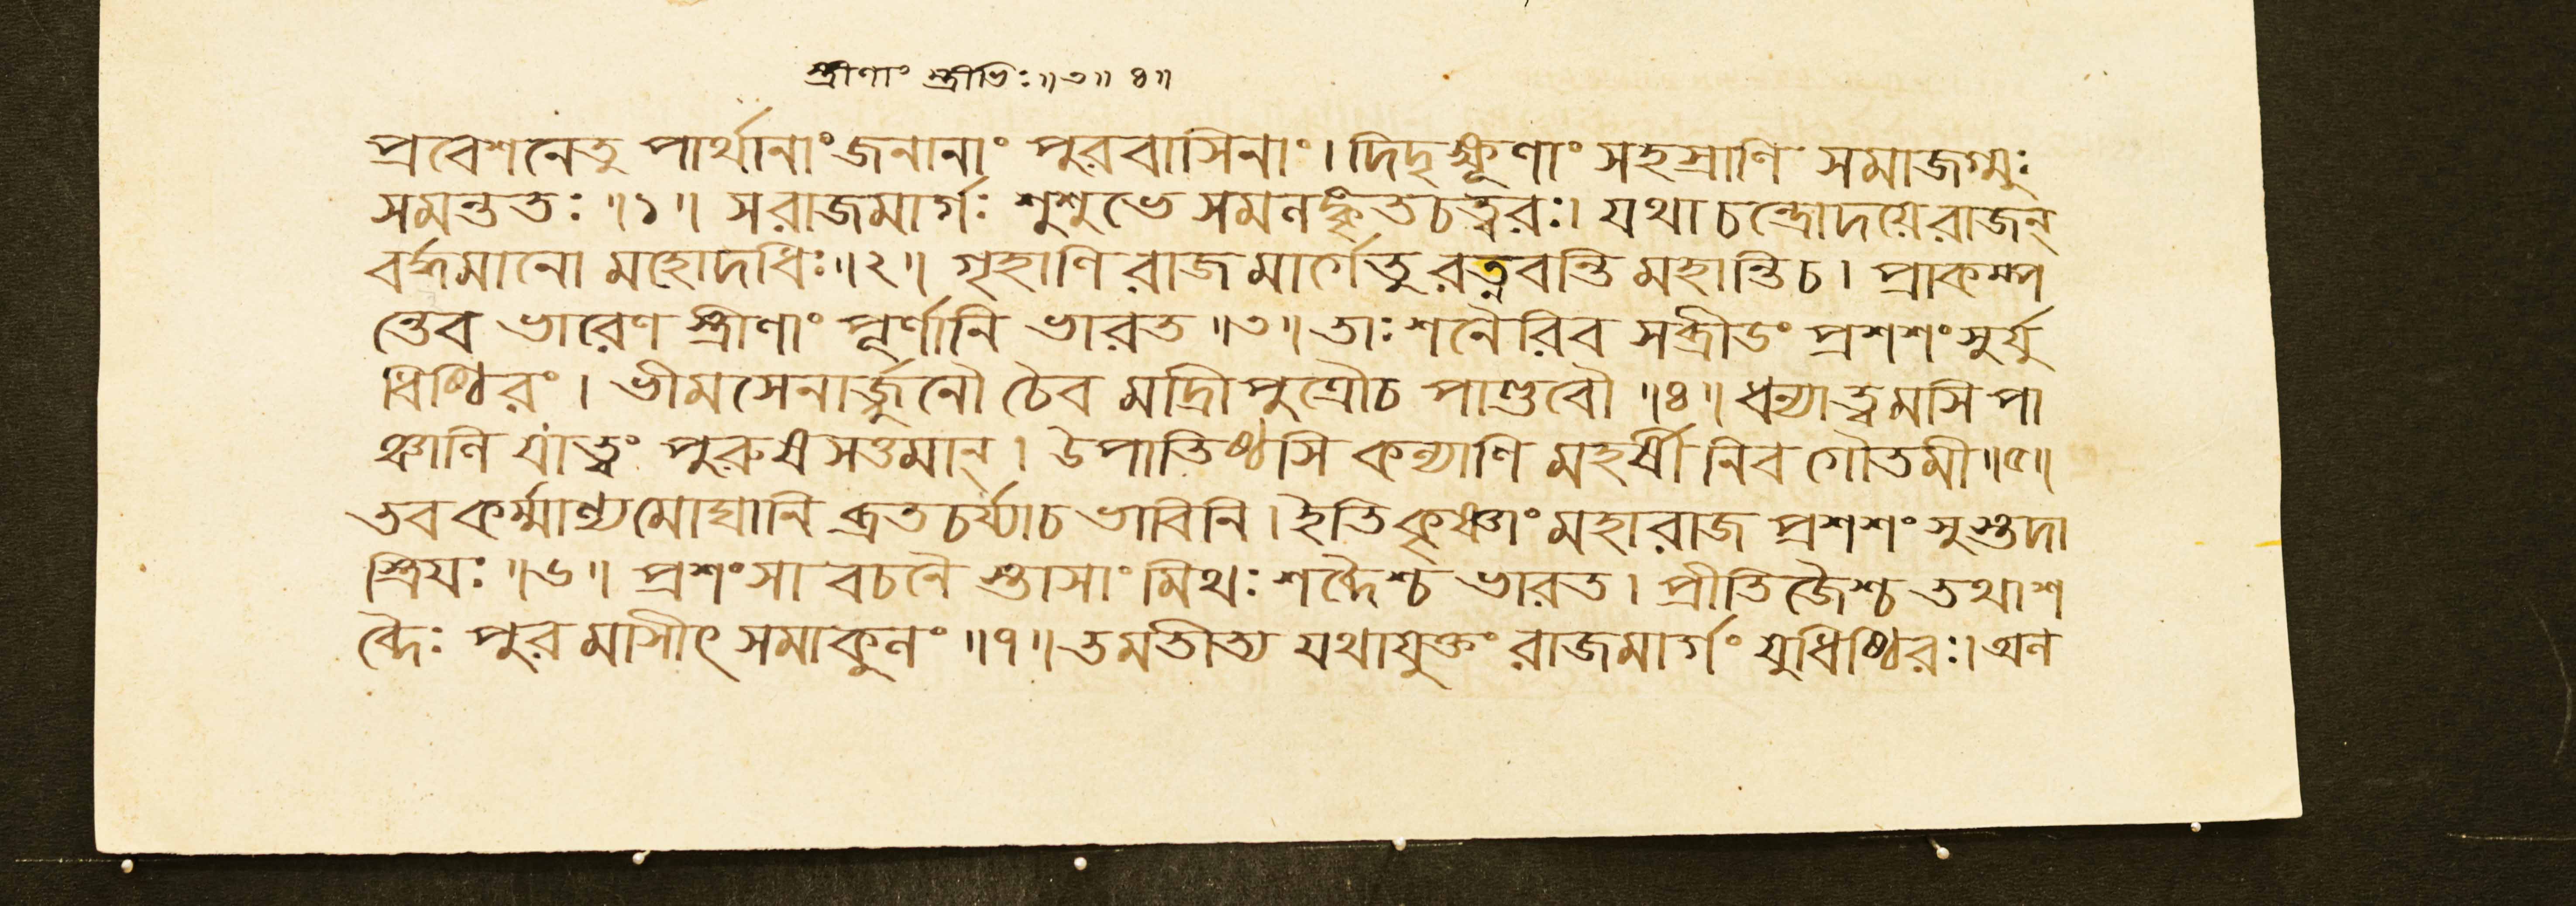 স্ত্রীণাং স্ত্রীভিঃ॥৩॥ ৪॥
প্রবেশনেতু পার্থানাংজনানাং পুরবাসিনাং। দিদৃক্ষূণাং সহস্রাণি সমাজগ্মুঃ
সমন্ততঃ ॥১॥ সরাজমার্গঃ শুশুভে সমলঙ্কৃতচত্বরঃ। যথাচন্দ্রোদয়েরাজন্
বর্দ্ধমানো মহোদধিঃ॥২॥ গৃহাণি রাজমার্গেতু রত্নবন্তি মহান্তিচ। প্রাকম্প
ন্তেব ভারেণ স্ত্রীণাং পূর্ণানি ভারত ॥৩॥ তাঃশনৈরিব সব্রীডং প্রশশংসুর্যু
ধিষ্ঠিরং। ভীমসেনার্জ্জুনৌ চৈব মাদ্রীপুত্রৌচ পাণ্ডবৌ ॥৪॥ ধন্যাত্বমসি পা
ঞ্চালি যাত্বং পুরুষসত্তমান্। উপাতিষ্ঠসি কল্যাণি মহর্ষীনিব গৌতমী॥৫॥
তব কর্ম্মাণ্যমোঘানি ব্রতচর্য্যাচ ভাবিনি। ইতি কৃষ্ণাং মহারাজ প্রশশংসুস্তদা
স্ত্রিয়ঃ ॥৬॥ প্রশংসা বচনৈ স্তাসাং মিথঃ শব্দৈশ্চ ভারত। প্রীতিজৈশ্চ তথাশ
ব্দৈঃ পুরমাসীৎ সমাকুলং ॥৭॥ তমতীত্য যথাযুক্তং রাজমার্গং যুধিষ্ঠিরঃ। অল